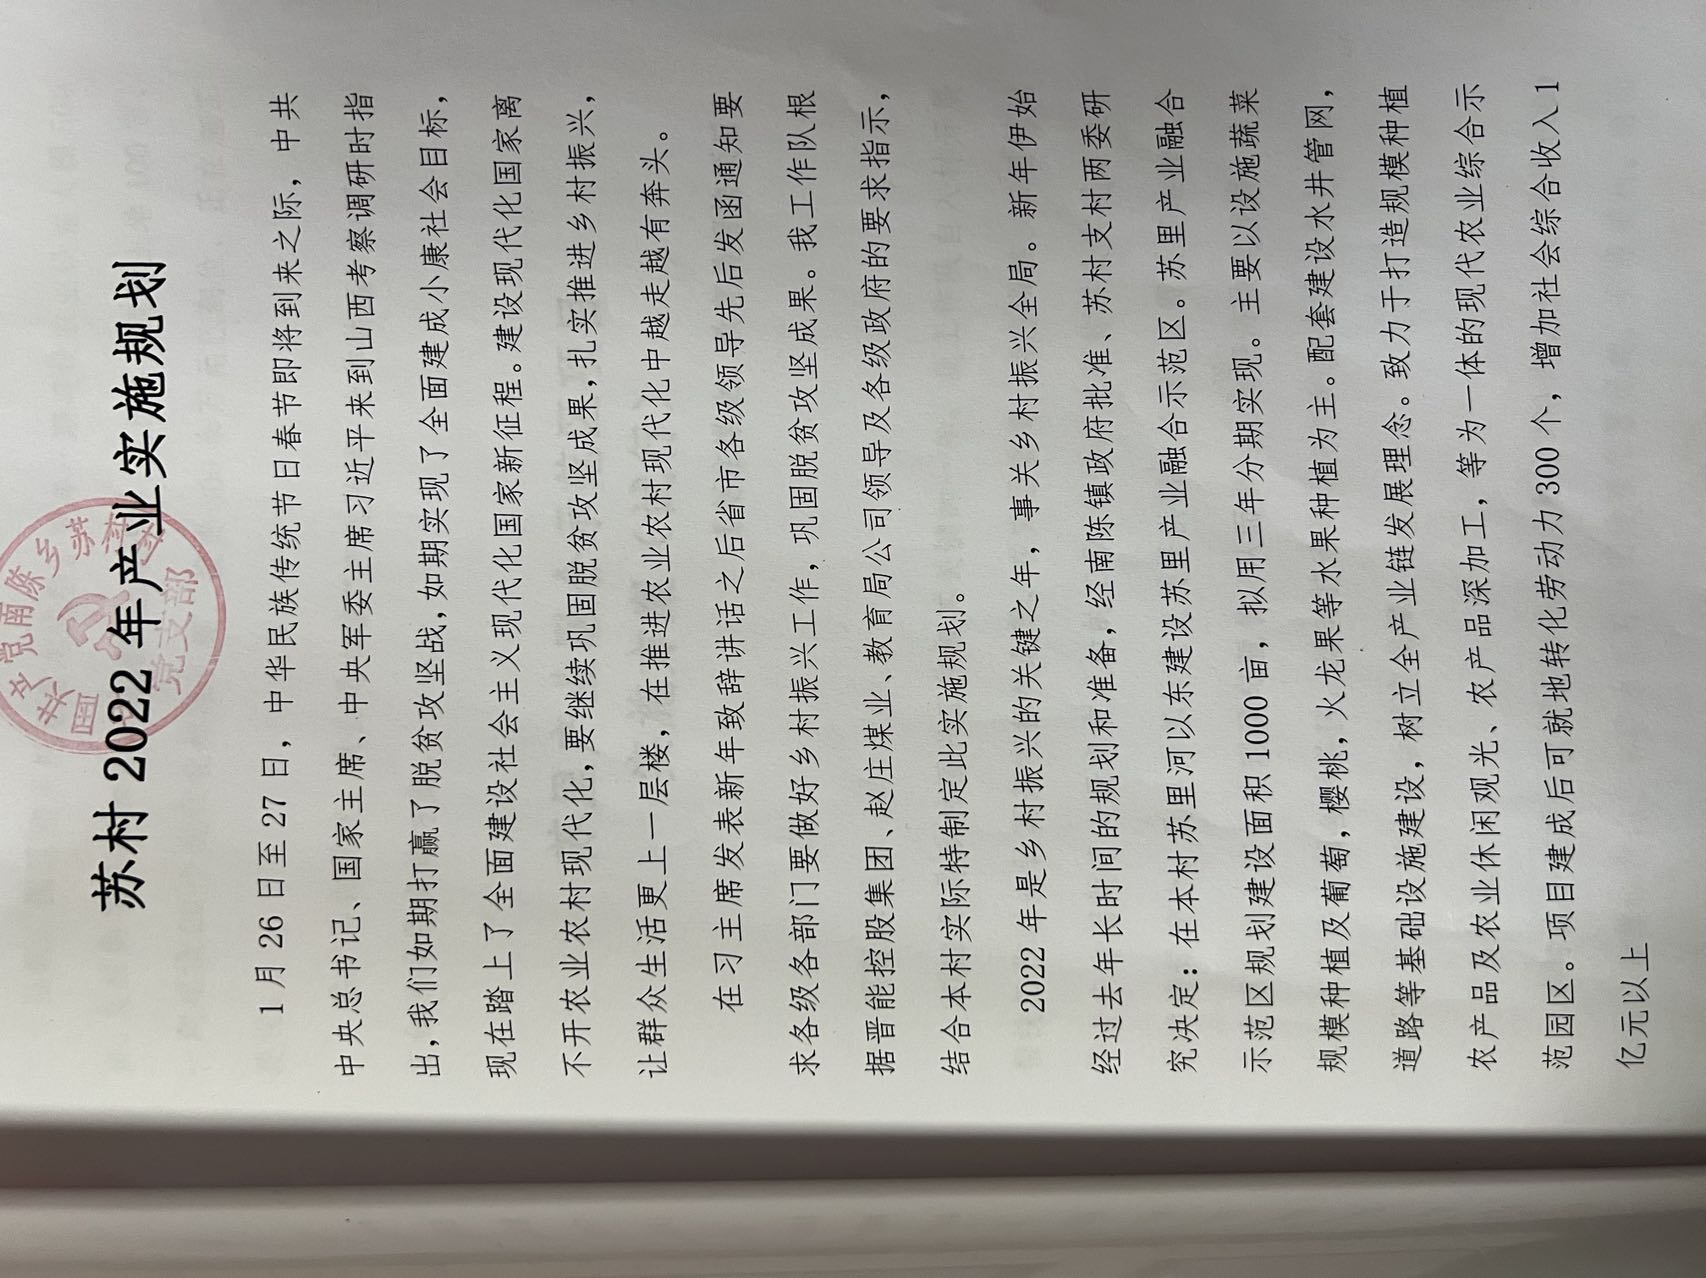 苏村 2022 年产业实施规划
中共
党南陈乡苏村
国
党支部
1 月 26 日至 27 日，中华民族传统节日春节即将到来之际，中共
中央总书记、国家主席、中央军委主席习近平来到山西考察调研时指
出,我们如期打赢了脱贫攻坚战,如期实现了全面建成小康社会目标,
现在踏上了全面建设社会主义现代化国家新征程。建设现代化国家离
不开农业农村现代化,要继续巩固脱贫攻坚成果,扎实推进乡村振兴,
让群众生活更上一层楼，在推进农业农村现代化中越走越有奔头。
在习主席发表新年致辞讲话之后省市各级领导先后发函通知要
求各级各部门要做好乡村振兴工作，巩固脱贫攻坚成果。我工作队根
据晋能控股集团、赵庄煤业、教育局公司领导及各级政府的要求指示，
结合本村实际特制定此实施规划。
2022 年是乡村振兴的关键之年，事关乡村振兴全局。新年伊始
经过去年长时间的规划和准备，经南陈镇政府批准、苏村支村两委研
究决定：在本村苏里河以东建设苏里产业融合示范区。苏里产业融合
示范区规划建设面积 1000 亩，拟用三年分期实现。主要以设施蔬菜
规模种植及葡萄,樱桃,火龙果等水果种植为主。配套建设水井管网,
道路等基础设施建设，树立全产业链发展理念。致力于打造规模种植
农产品及农业休闲观光、农产品深加工，等为一体的现代农业综合示
范园区。项目建成后可就地转化劳动力 300 个，增加社会综合收入 1
亿元以上